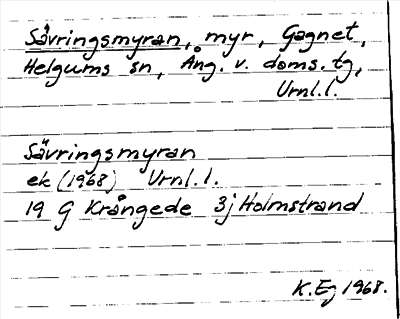 Sävringsmyran, myr, Gagnet,
Helgums sn, Ång. v. doms. tg,
Urnl.l.
Sävringsmyran
ek (1968) Urnl.l.
19 G Krångede 3j Holmstrand
K.Eg 1968.